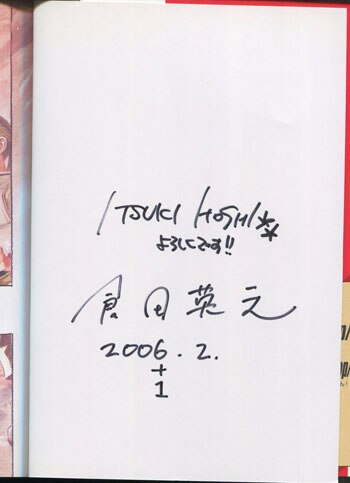 ITSUKI HOSHI**
よろしくです!!
倉田英之
2006.2.
+
1